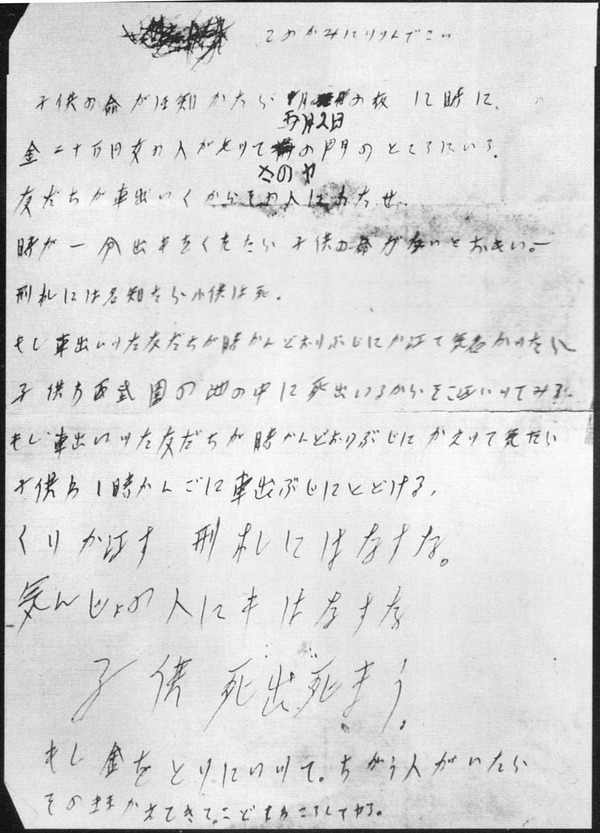 このかみにつつんでこい
子供の命がほ知かたら の夜 12時に、
五月2日
金二十万円女の人がもツて の門のところにいろ。
さのヤ
友だちが車出いくからその人にわたせ。
時が一分出もをくれたら子供の命がないとおもい。―
刑札には名知たら小供は死。
もし車出いツた友だちが時かんどおりぶじにか江て気名かツたら
子供わ西武園の池の中に死出いるからそこ江いツてみろ。
もし車出いツた友だちが時かんどおりぶじにかえツて気たら
子供わ1時かんごに車出ぶじにとどける。
くりか江す 刑札にはなすな。
気んじょの人にもはなすな
子供死出死まう。
もし金をとりにいツて。ちがう人がいたら
そのままかえてきて。こどもわころしてヤる。